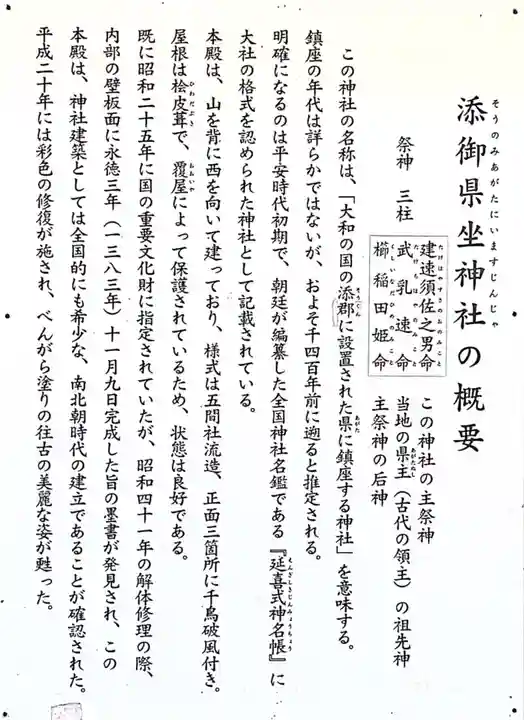 添御県坐神社の概要
そうのみあがたにいますじんじゃ
祭神 三柱
建速須佐之男命 この神社の主祭神
たけはやすさのおのみこと
武乳速命 当地の県主（古代の領主）の祖先神
たけちはやのみこと
あがたぬし
櫛稲田姫命 主祭神の后神
くしいなだひめのみこと
この神社の名称は、「大和の国の添郡に設置された県に鎮座する神社」を意味する。
そうぐん
あがた
鎮座の年代は詳らかではないが、およそ千四百年前に遡ると推定される。
明確になるのは平安時代初期で、朝廷が編纂した全国神社名鑑である『延喜式神名帳』に
えんぎしきじんみょうちょう
大社の格式を認められた神社として記載されている。
本殿は、山を背に西を向いて建っており、様式は五間社流造、正面三箇所に千鳥破風付き。
屋根は桧皮葺で、覆屋によって保護されているため、状態は良好である。
ひわだぶき
おおいや
既に昭和二十五年に国の重要文化財に指定されていたが、昭和四十一年の解体修理の際、
内部の壁板面に永徳三年（一三八三年）十一月九日完成した旨の墨書が発見され、この
本殿は、神社建築としては全国的にも希少な、南北朝時代の建立であることが確認された。
平成二十年には彩色の修復が施され、べんがら塗りの往古の美麗な姿が甦った。